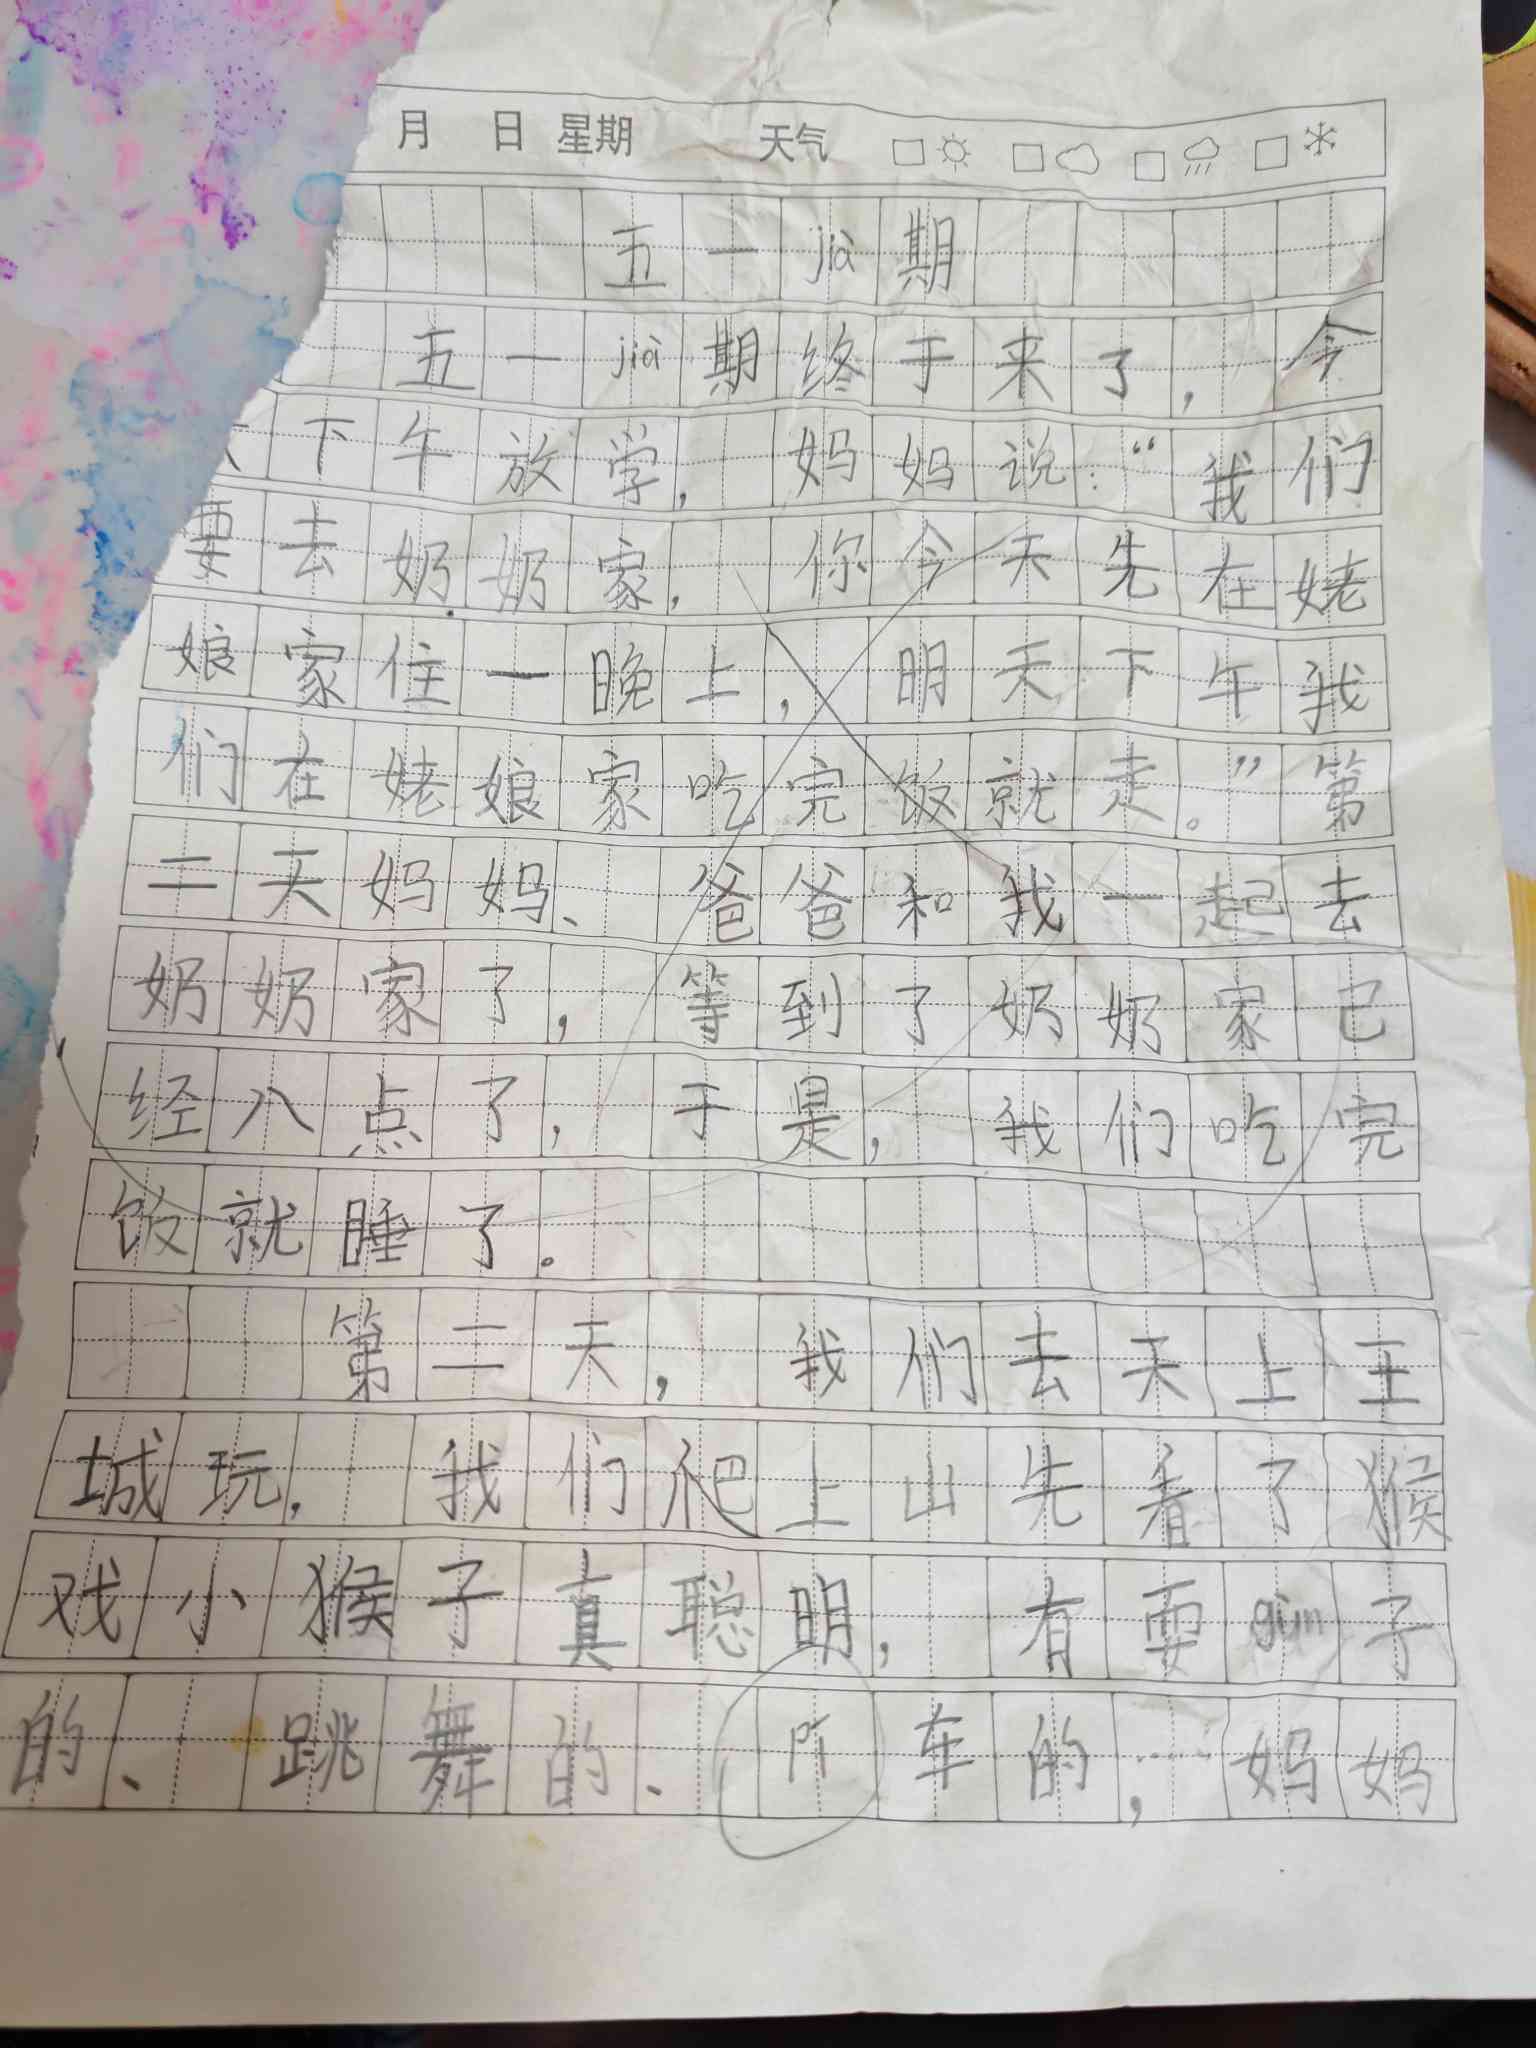 月 日 星期 天气
五一jià期
五一jià期终于来了，今
下午放学，妈妈说：“我们
要去奶奶家，你今天先在姥
娘家住一晚上，明天下午我
们在姥娘家吃完饭就走。”第
二天妈妈、爸爸和我一起去
奶奶家了，等到了奶奶家已
经八点了，于是，我们吃完
饭就睡了。
第二天，我们去天上王
城玩，我们爬上山先看了猴
戏小猴子真聪明，有耍gùn子
的、跳舞的、车的，妈妈